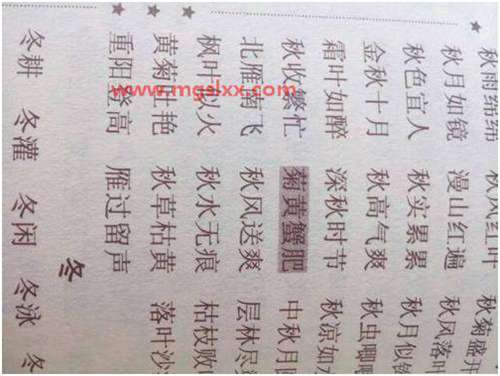 秋雨绵绵 秋风红叶 秋菊盛开
秋月如镜 漫山红遍 秋风落叶
秋色宜人 秋实累累 秋月似镜
金秋十月 秋高气爽 秋虫唧唧
霜叶如醉 深秋时节 秋凉如水
秋收繁忙 菊黄蟹肥 中秋月
北雁南飞 秋风送爽 层林尽
枫叶似火 秋水无痕 枯枝败
黄菊吐艳 秋草枯黄 落叶沙
重阳登高 雁过留声
冬
冬耕 冬灌 冬闲 冬泳 冬
www.mgslxx.com